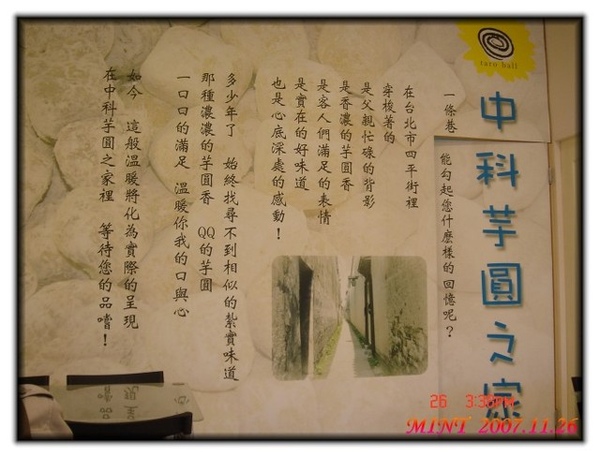 taro ball
中科芋圓之家
一條巷，能勾起您什麼樣的回憶呢？
在台北市四平街裡
穿梭著的
是父親忙碌的背影
是香濃的芋圓香
是客人們滿足的表情
是實在的好味道
也是心底深處的感動！
多少年了 始終找尋不到相似的紮實味道
那種濃濃的芋圓香 QQ的芋圓
一口口的滿足 溫暖你我的口與心
如今 這般溫暖將化為實際的呈現
在中科芋圓之家裡 等待您的品嚐！
26 3:38PM
MINT 2007.11.26